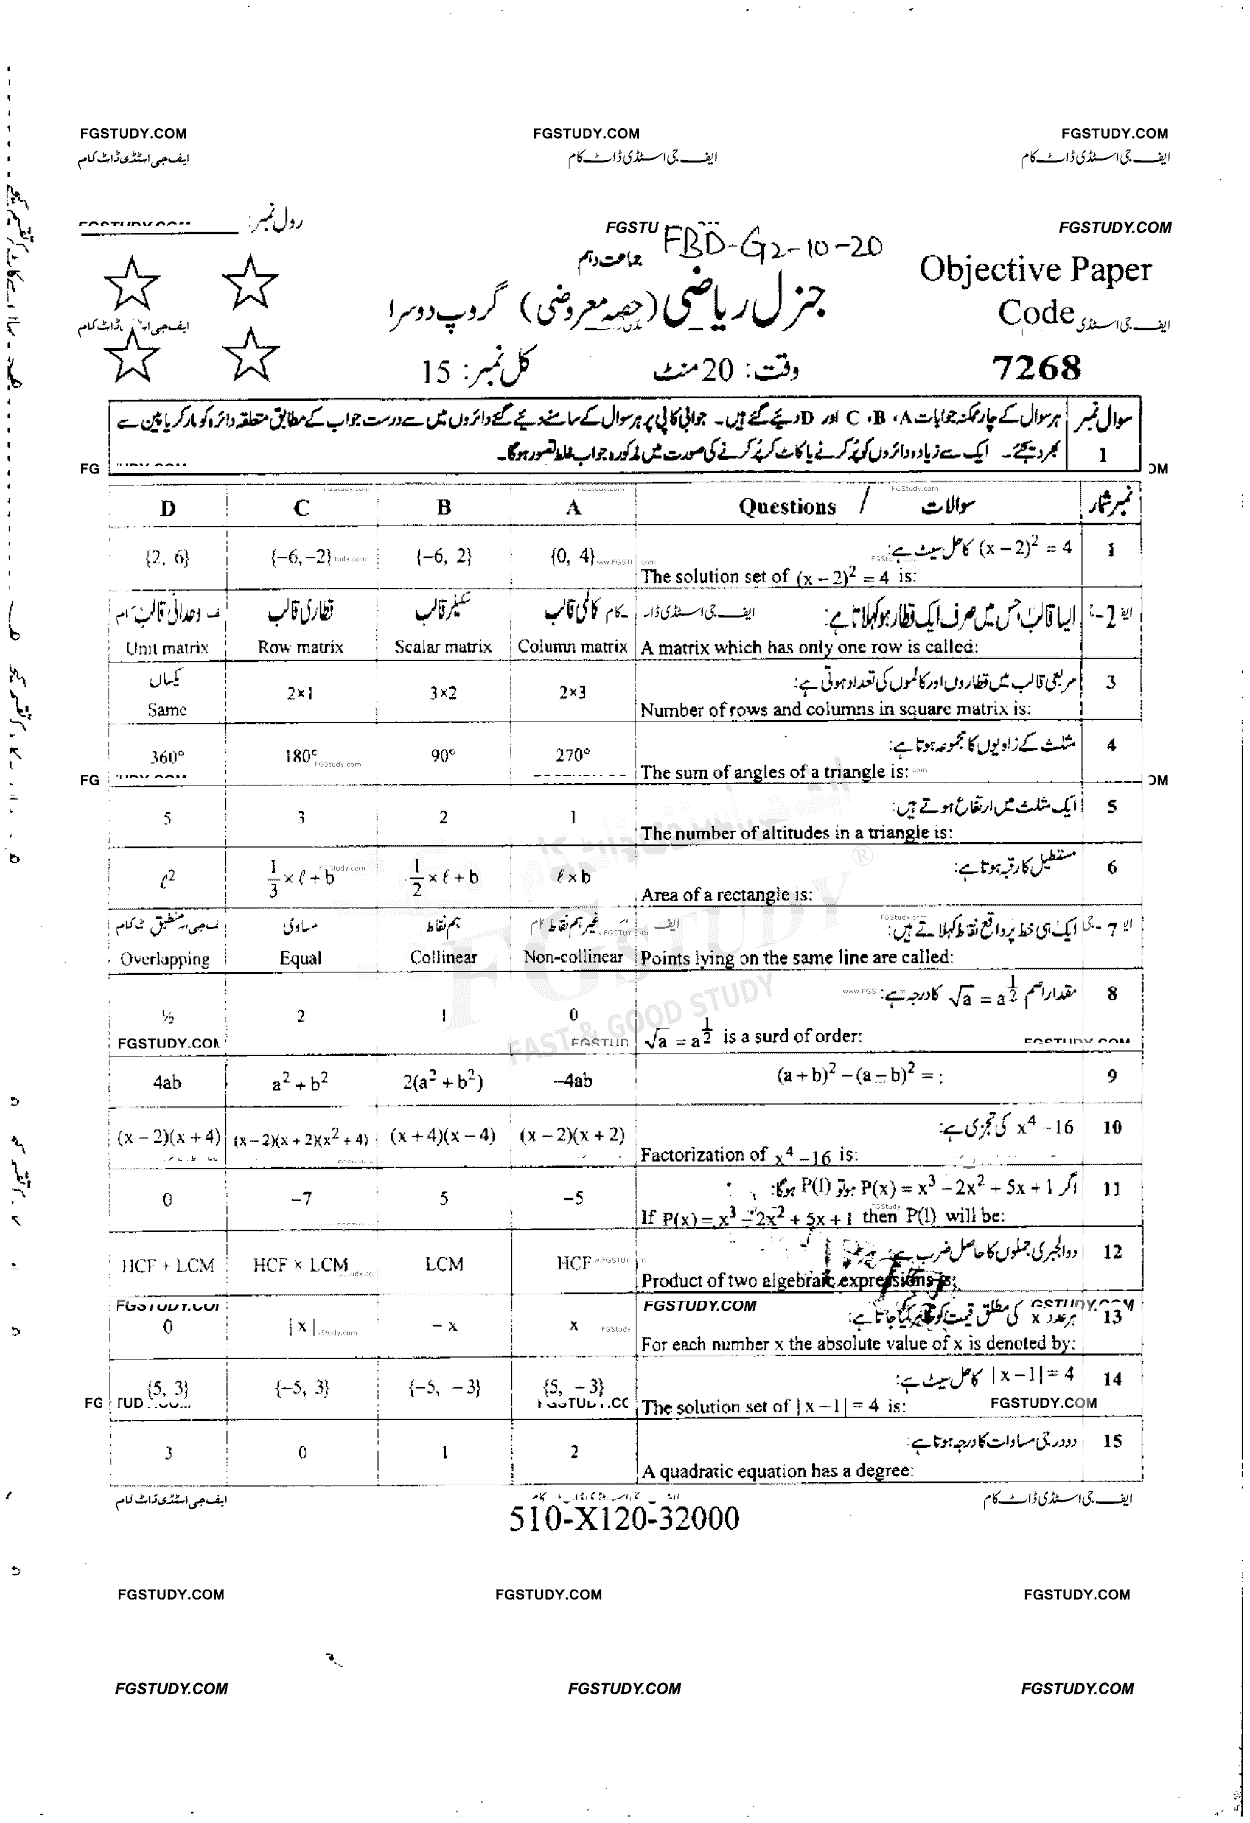 FGSTUDY.COM FGSTUDY.COM FGSTUDY.COM
ایف جی اسٹڈی ڈاٹ کام ایف جی اسٹڈی ڈاٹ کام ایف جی اسٹڈی ڈاٹ کام
رول نمبر: FGSTUDY.COM
FBD-G2-10-20
جماعت دہم
Objective Paper
Code
7268
جنرل ریاضی (حصہ معروضی) گروپ دوسرا
وقت: 20 منٹ کل نمبر: 15
سوال نمبر 1 ہر سوال کے چار ممکنہ جوابات A، B، C اور D دیئے گئے ہیں۔ جوابی کاپی پر ہر سوال کے سامنے دیئے گئے دائروں میں سے درست جواب کے مطابق متعلقہ دائرہ کو مارکر یا پین سے
بھر دیجئے۔ ایک سے زیادہ دائروں کو پُر کرنے یا کاٹ کر پُر کرنے کی صورت میں مذکورہ جواب غلط تصور ہوگا۔
D C B A Questions / سوالات نمبر شمار
1 (x − 2)² = 4 کا حل سیٹ ہے:
{2, 6} {−6, −2} {−6, 2} {0, 4}
The solution set of (x − 2)² = 4 is:
2 ایسا قالب جس میں صرف ایک قطار ہو کہلاتا ہے:
وحدانی قالب قطاری قالب سکیلر قالب کالمی قالب
Unit matrix Row matrix Scalar matrix Column matrix A matrix which has only one row is called:
3 مربعی قالب میں قطاروں اور کالموں کی تعداد ہوتی ہے:
یکساں
Same 2×1 3×2 2×3 Number of rows and columns in square matrix is:
4 مثلث کے زاویوں کا مجموعہ ہوتا ہے:
360° 180° 90° 270° The sum of angles of a triangle is:
5 ایک مثلث میں ارتفاع ہوتے ہیں:
5 3 2 1 The number of altitudes in a triangle is:
6 مستطیل کا رقبہ ہوتا ہے:
ℓ² 1/3 × ℓ + b 1/2 × ℓ + b ℓ × b Area of a rectangle is:
7 ایک ہی خط پر واقع نقاط کہلاتے ہیں:
منطبق مساوی ہم نقاط غیر ہم نقاط
Overlapping Equal Collinear Non-collinear Points lying on the same line are called:
8 مقدار اصم √a = a^(1/2) کا درجہ ہے:
½ 2 1 0 √a = a^(1/2) is a surd of order:
9 (a + b)² − (a − b)² = :
4ab a² + b² 2(a² + b²) −4ab
10 x⁴ − 16 کی تجزی ہے:
(x − 2)(x + 4) (x − 2)(x + 2)(x² + 4) (x + 4)(x − 4) (x − 2)(x + 2)
Factorization of x⁴ − 16 is:
11 اگر P(x) = x³ − 2x² + 5x + 1 ہو تو P(1) ہوگا:
0 −7 5 −5
If P(x) = x³ − 2x² + 5x + 1 then P(1) will be:
12 دو الجبری جملوں کا حاصل ضرب ہے:
HCF + LCM HCF × LCM LCM HCF Product of two algebraic expressions is:
FGSTUDY.COM
13 ہر عدد x کی مطلق قیمت کو ظاہر کیا جاتا ہے:
0 |x| − x x
For each number x the absolute value of x is denoted by:
14 |x − 1| = 4 کا حل سیٹ ہے:
{5, 3} {−5, 3} {−5, −3} {5, −3}
The solution set of |x − 1| = 4 is: FGSTUDY.COM
15 دو درجی مساوات کا درجہ ہوتا ہے:
3 0 1 2 A quadratic equation has a degree:
ایف جی اسٹڈی ڈاٹ کام ایف جی اسٹڈی ڈاٹ کام
510-X120-32000
FGSTUDY.COM FGSTUDY.COM FGSTUDY.COM
FGSTUDY.COM FGSTUDY.COM FGSTUDY.COM
FGSTUDY
FAST & GOOD STUDY